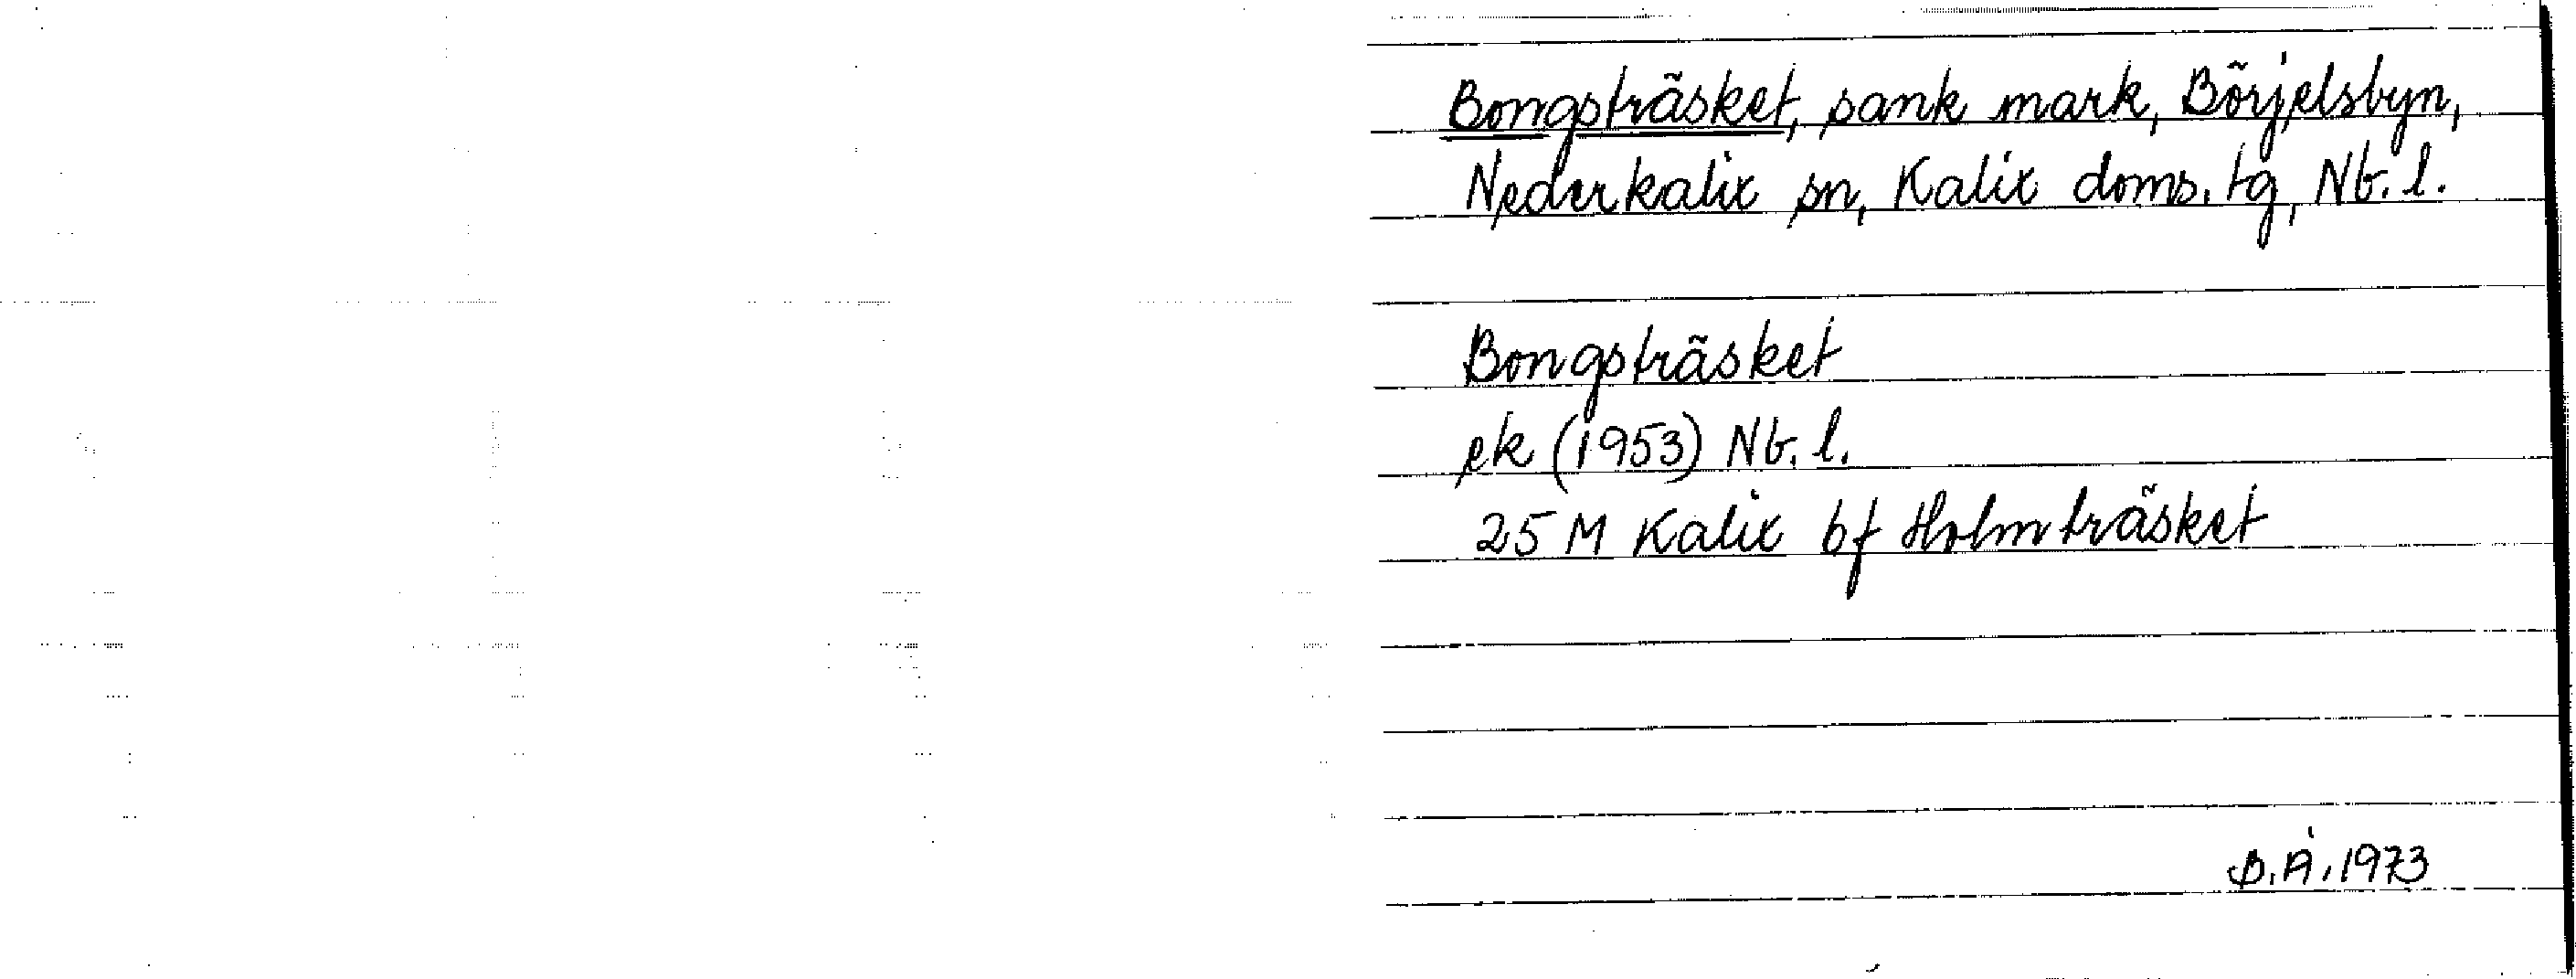 Bongsträsket, sank mark, Börjelsbyn,
Nederkalix sn, Kalix doms. tg, Nb. l.
Bongsträsket
ek (1953) Nb. l.
25 M Kalix bf Holmträsket
B.Å. 1973